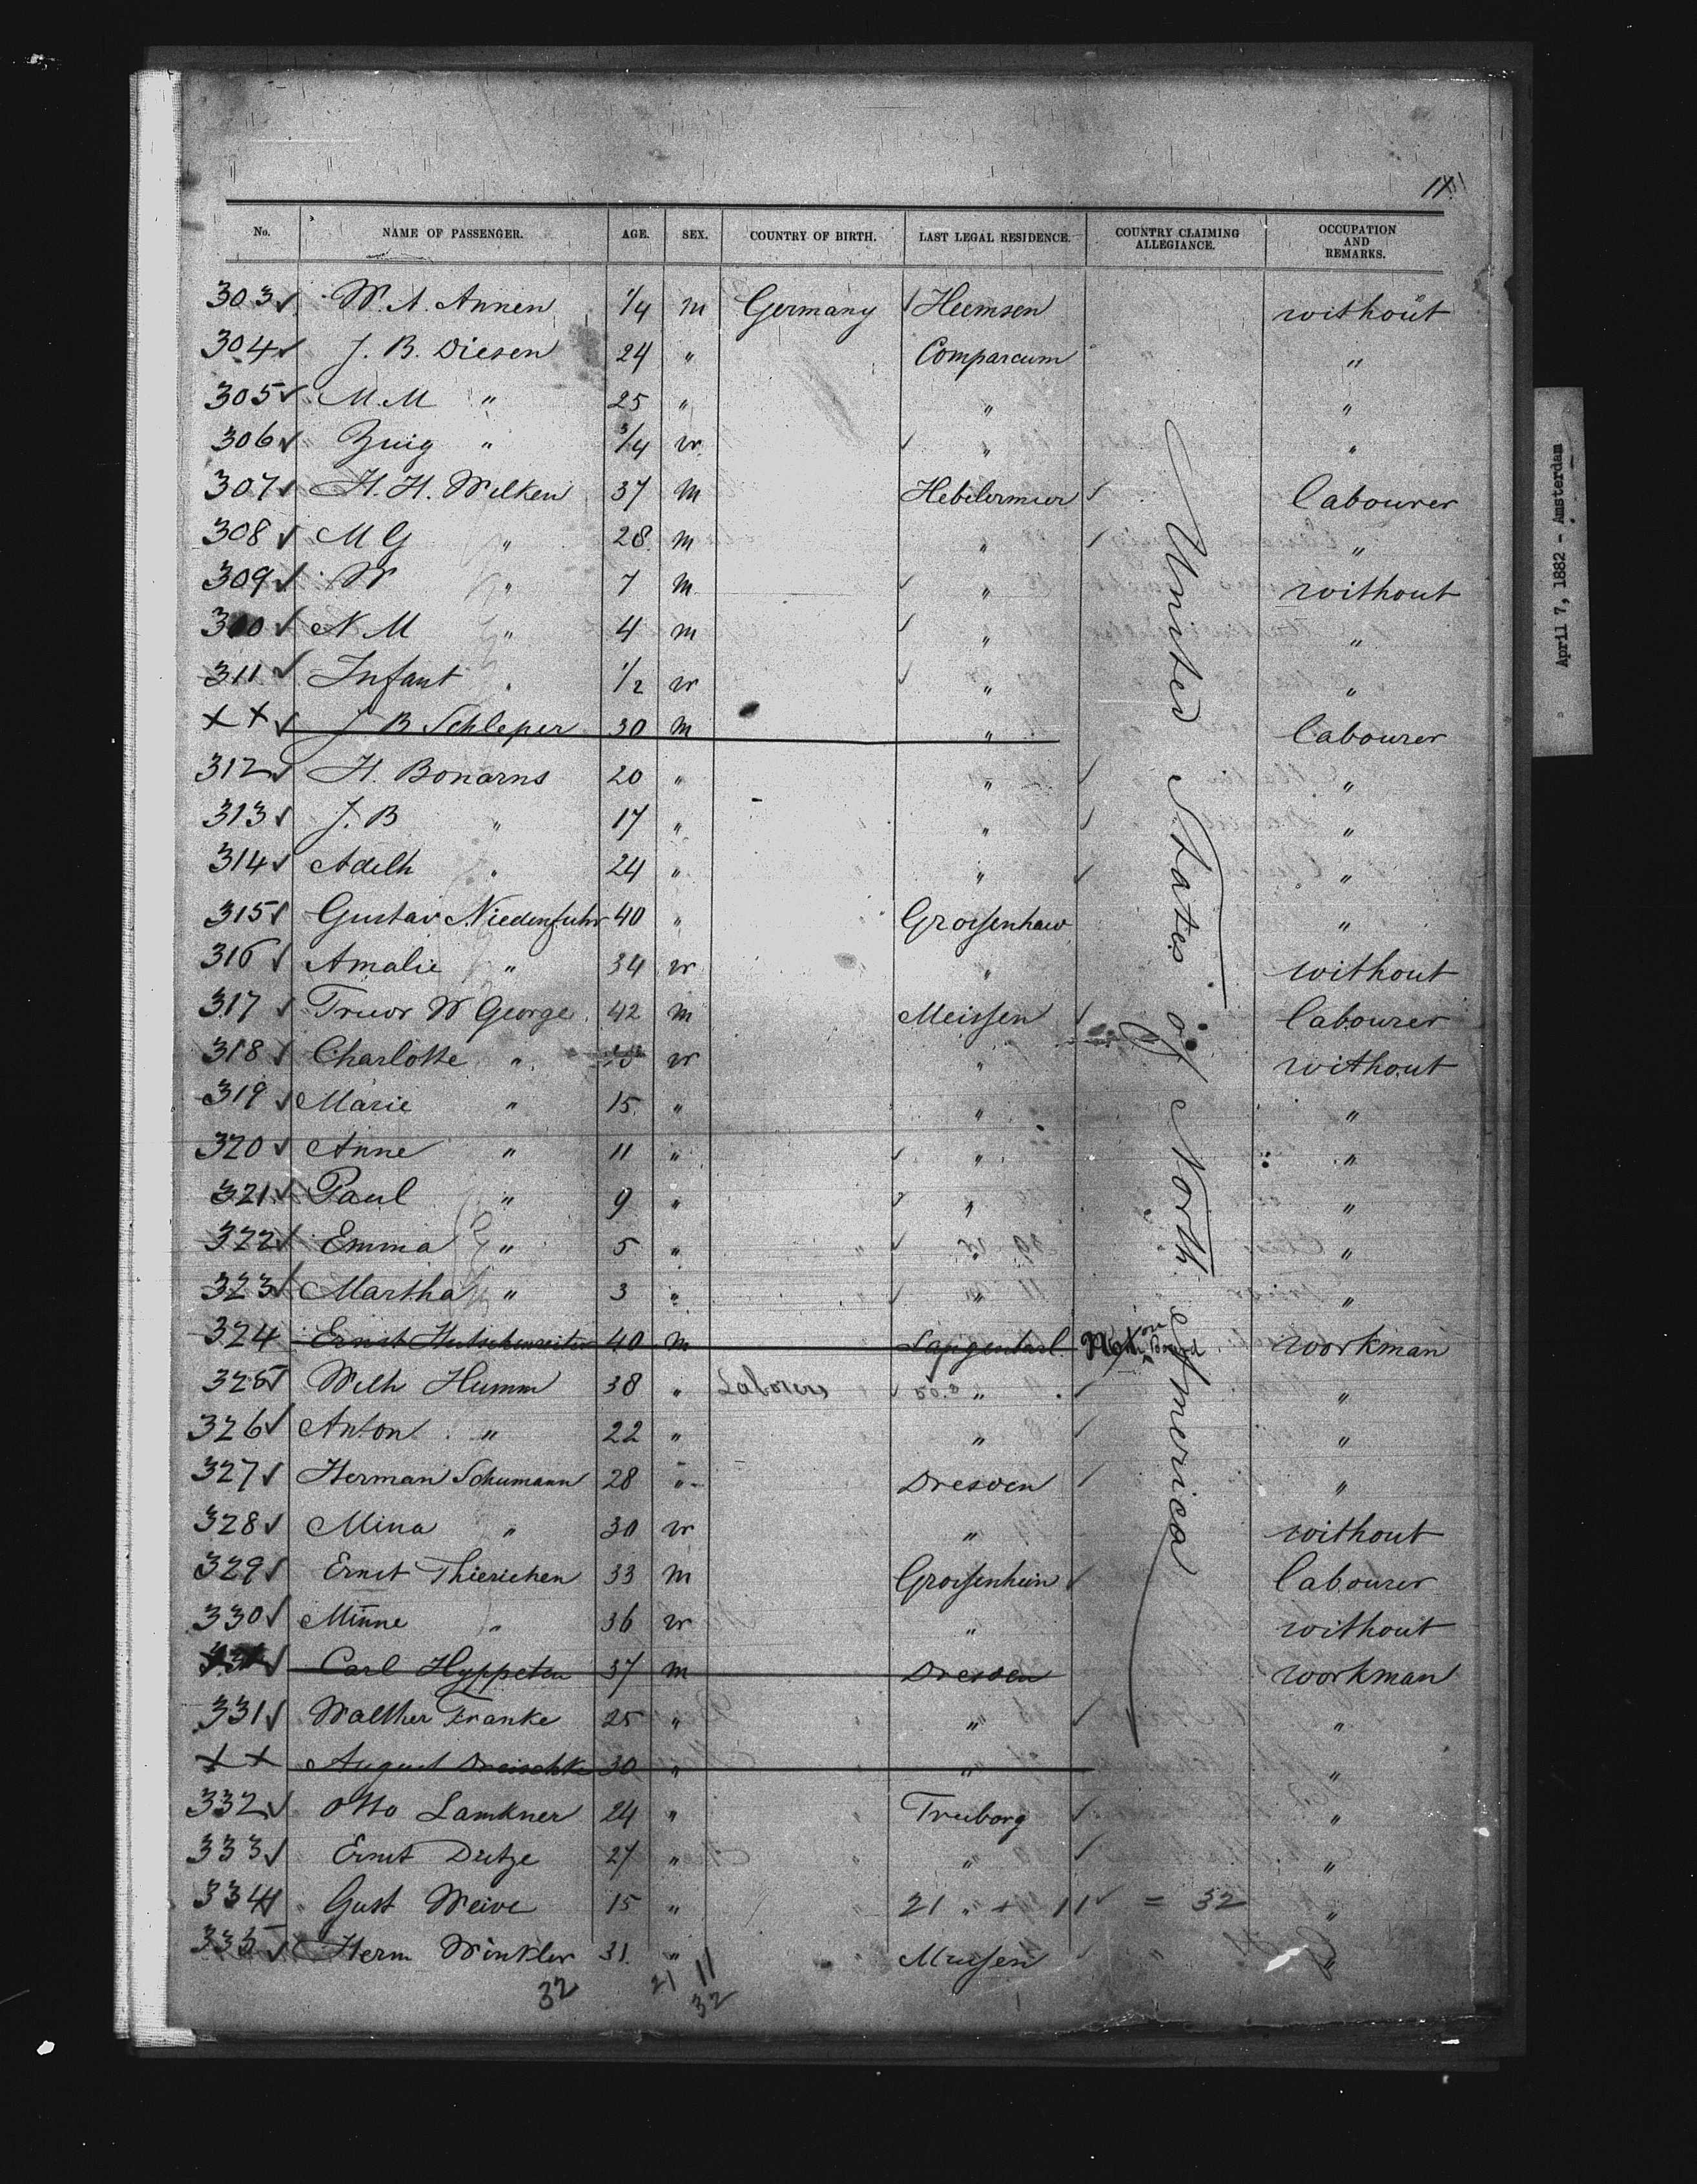 11
No. NAME OF PASSENGER. AGE. SEX. COUNTRY OF BIRTH. LAST LEGAL RESIDENCE. COUNTRY CLAIMING ALLEGIANCE. OCCUPATION AND REMARKS.
303 ✓ W. A. Annen 1/4 m Germany Heemsen without
304 ✓ J. B. Diesen 24 " Comparcum "
305 ✓ M. M " 25 " " "
306 ✓ Zuig " 3/4 w ✓ " "
307 ✓ H. H. Wilken 37 m Hebelermeer ✓ labourer
308 ✓ M G " 28 m " ✓ "
309 ✓ W " 7 m ✓ " without
300 ✓ N M " 4 m ✓ " "
311 ✓ Infant " 1/2 w ✓ " "
X X ✓ J B Schleper 30 m " labourer
312 ✓ H. Bonarns 20 " " ✓ "
313 ✓ J. B " 17 " " ✓ "
314 ✓ Adelh " 24 " " ✓ "
315 ✓ Gustav Niedenfuhr 40 " Groszenhaw "
316 ✓ Amalie " 34 w " without
317 ✓ Truor W George 42 m Meissen ✓ labourer
318 ✓ Charlotte " w " without
319 ✓ Marie " 15 " " "
320 ✓ Anne " 11 " ✓ " "
321 ✓ Paul " 9 " ✓ " "
322 ✓ Emma " 5 " ✓ " "
323 ✓ Martha " 3 " ✓ " "
324 Ernst Hutschenreiter 40 m Langenbarl. Not on Board workman
325 ✓ Welh Humm 38 " Laborers ✓ " ✓ "
326 ✓ Anton " 22 " " ✓ "
327 ✓ Herman Schumann 28 " Dresden ✓ "
328 ✓ Mina " 30 w " without
329 ✓ Ernst Thierichen 33 m Groszenhein ✓ labourer
330 ✓ Minne " 36 w " without
Carl Hyppeten 37 m Dresden workman
331 ✓ Walther Franke 25 " " ✓ "
X X August Dreischke 30 " " "
332 ✓ Otto Lamkner 24 " Truborg ✓ "
333 ✓ Ernst Dietze 27 " " ✓ "
334 ✓ Gust Weive 15 " 21 " + 11 ✓ = 32 "
335 ✓ Herm Winkler 31 " Mussen ✓ "
32 21 11
32
United States of North America
April 7, 1882 - Amsterdam